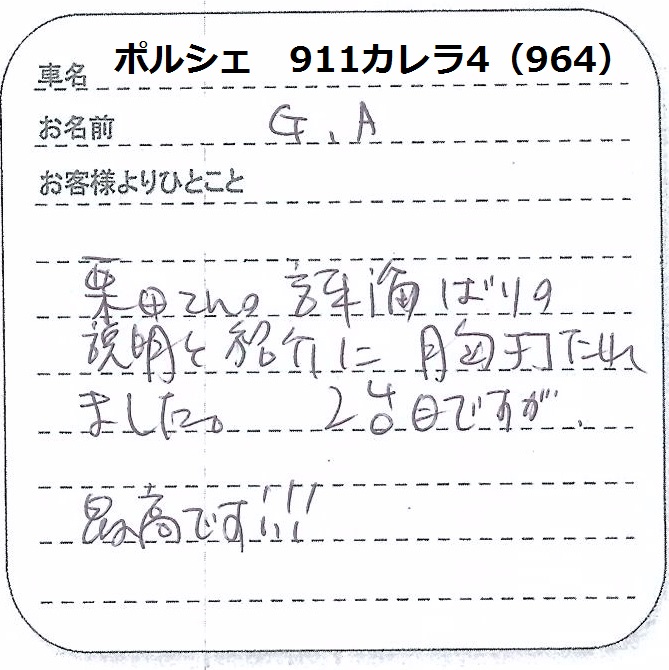 車名 ポルシェ 911カレラ4（964）
お名前 G.A
お客様よりひとこと
栗田さんの ばりの
説明と紹介に 胸打たれ
ました。 2台目ですが、
最高です!!!